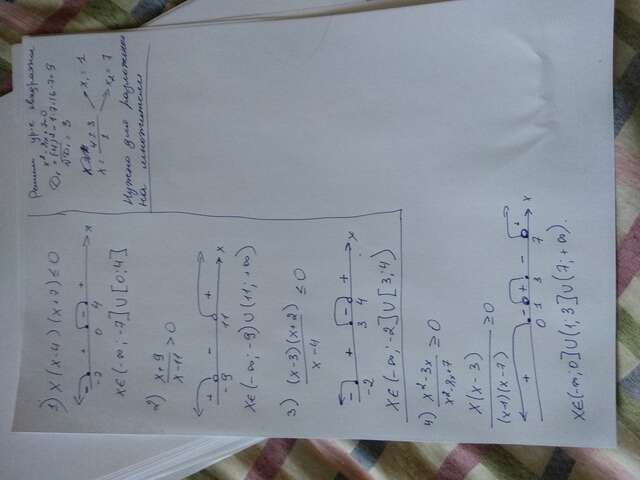 1) x(x-4)(x+7)≤0
- + - +
-7 0 4 x
x∈(-∞;-7]∪[0;4]
2) x+9
x-11 >0
+ - +
-9 11 x
x∈(-∞;-9)∪(11;+∞)
3) (x-3)(x+2)
x-4 ≤0
- + - +
-2 3 4 x
x∈(-∞;-2]∪[3;4)
4) x²-3x
x²-8x+7 ≥0
x(x-3)
(x-1)(x-7) ≥0
+ - + - +
0 1 3 7 x
x∈(-∞;0]∪(1;3]∪(7;+∞).
Решим ур-е квадратное
x²-8x+7=0
D₁=(-4)²-1·7=16-7=9
√D₁=3
x= 4±3
1
x₁=1
x₂=7
Нужно для разложения
на множители